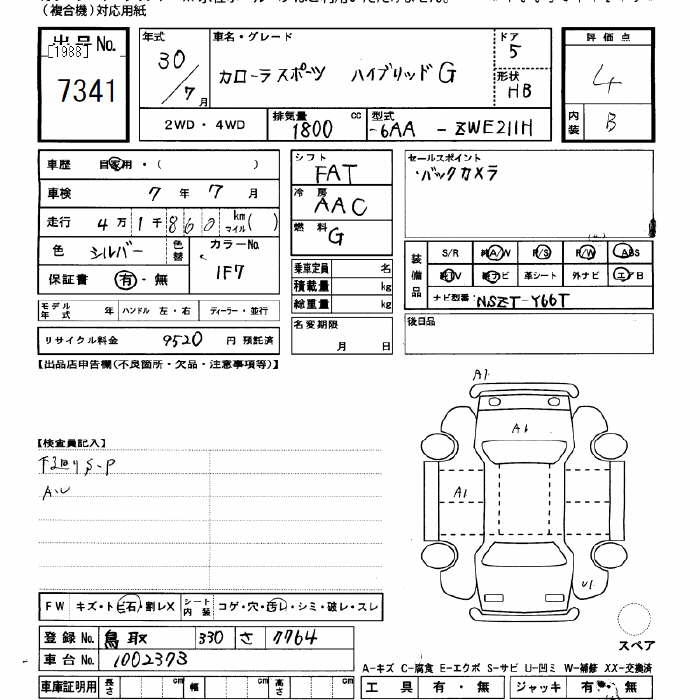 (複合機)対応用紙
出品No.
[1988]
7341
年式
30/7月
車名・グレード
カローラスポーツ ハイブリッドG
ドア
5
形状
HB
評価点
4
内装
B
2WD・4WD
排気量
1800 cc
型式
-6AA - ZWE211H
車歴 自家用・( )
車検 7年7月
走行 4万1千860 km マイル( )
色 シルバー 色替
カラーNo. 1F7
保証書 有・無
モデル年式 年 ハンドル 左・右 ディーラー・並行
リサイクル料金 9520 円 預託済
シフト FAT
冷房 AAC
燃料 G
乗車定員 名
積載量 kg
総重量 kg
名変期限
月 日
セールスポイント
・バックカメラ
装備品
S/R 純A/W P/S P/W ABS
純TV 純ナビ 革シート 外ナビ エアB
ナビ型番: NSZT-Y66T
後日品
【出品店申告欄(不良箇所・欠品・注意事項等)】
【検査員記入】
A.U
A1
A1
A1
U1
FW キズ・トビ石・割レX
シート内装 コゲ・穴・汚レ・シミ・破レ・スレ
登録No. 鳥取 330 さ 7764
車台No. 1002373
スペア
A-キズ C-腐食 E-エクボ S-サビ U-凹ミ W-補修 XX-交換済
車庫証明用 長さ cm 幅 cm 高さ cm
工具 有・無 ジャッキ 有・無